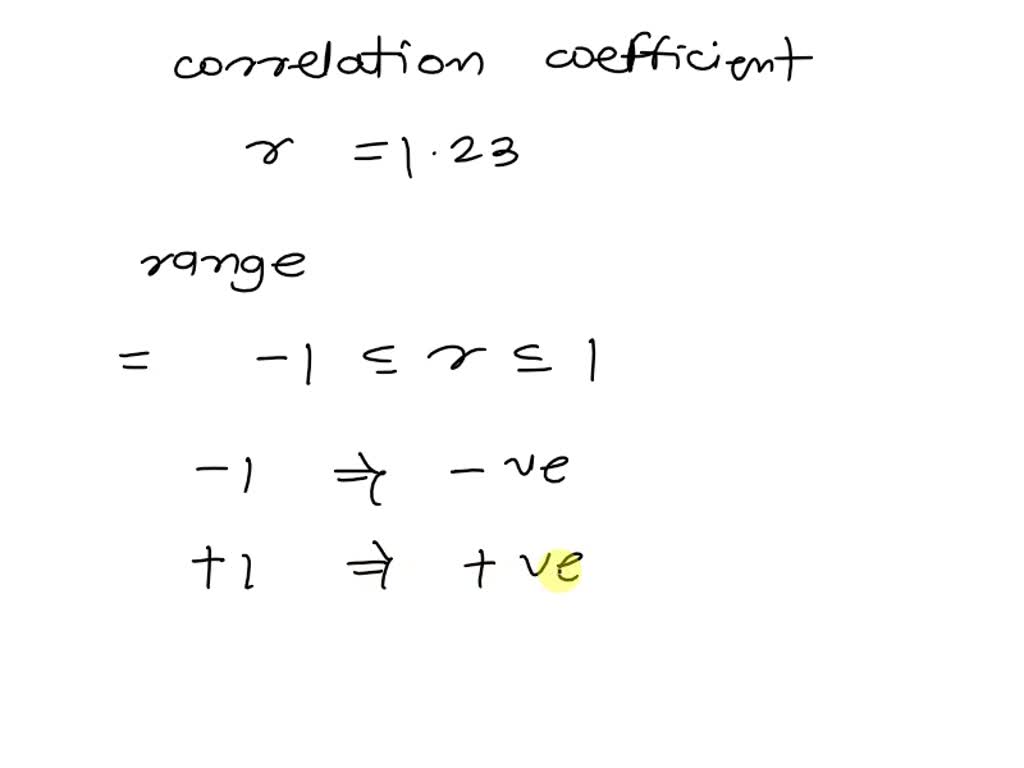 correlation coefficient
r = 1.23
range
= -1 ≤ r ≤ 1
-1 ⇒ -ve
+1 ⇒ +ve